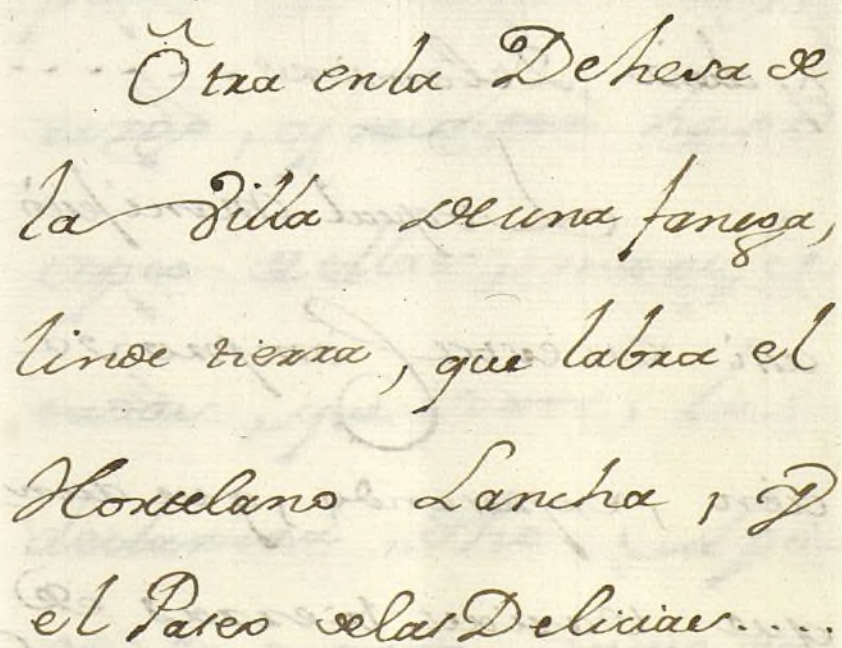 Otra en la Dehesa de
la Villa de una fanega,
linde tierra, que labra el
Hortelano Lancha, y
el Paseo de las Delicias....